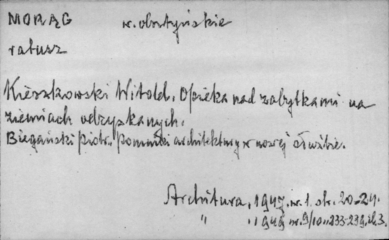 MORĄG w. olsztyńskie
ratusz
Kieszkowski Witold, Opieka nad zabytkami na
ziemiach odzyskanych.
Biegański Piotr, Pomniki architektury w nowej służbie.
Architura, 1947, nr. 1. str. 20-24.
" , 1949 nr. 9/10 " 233-239, il. 3.